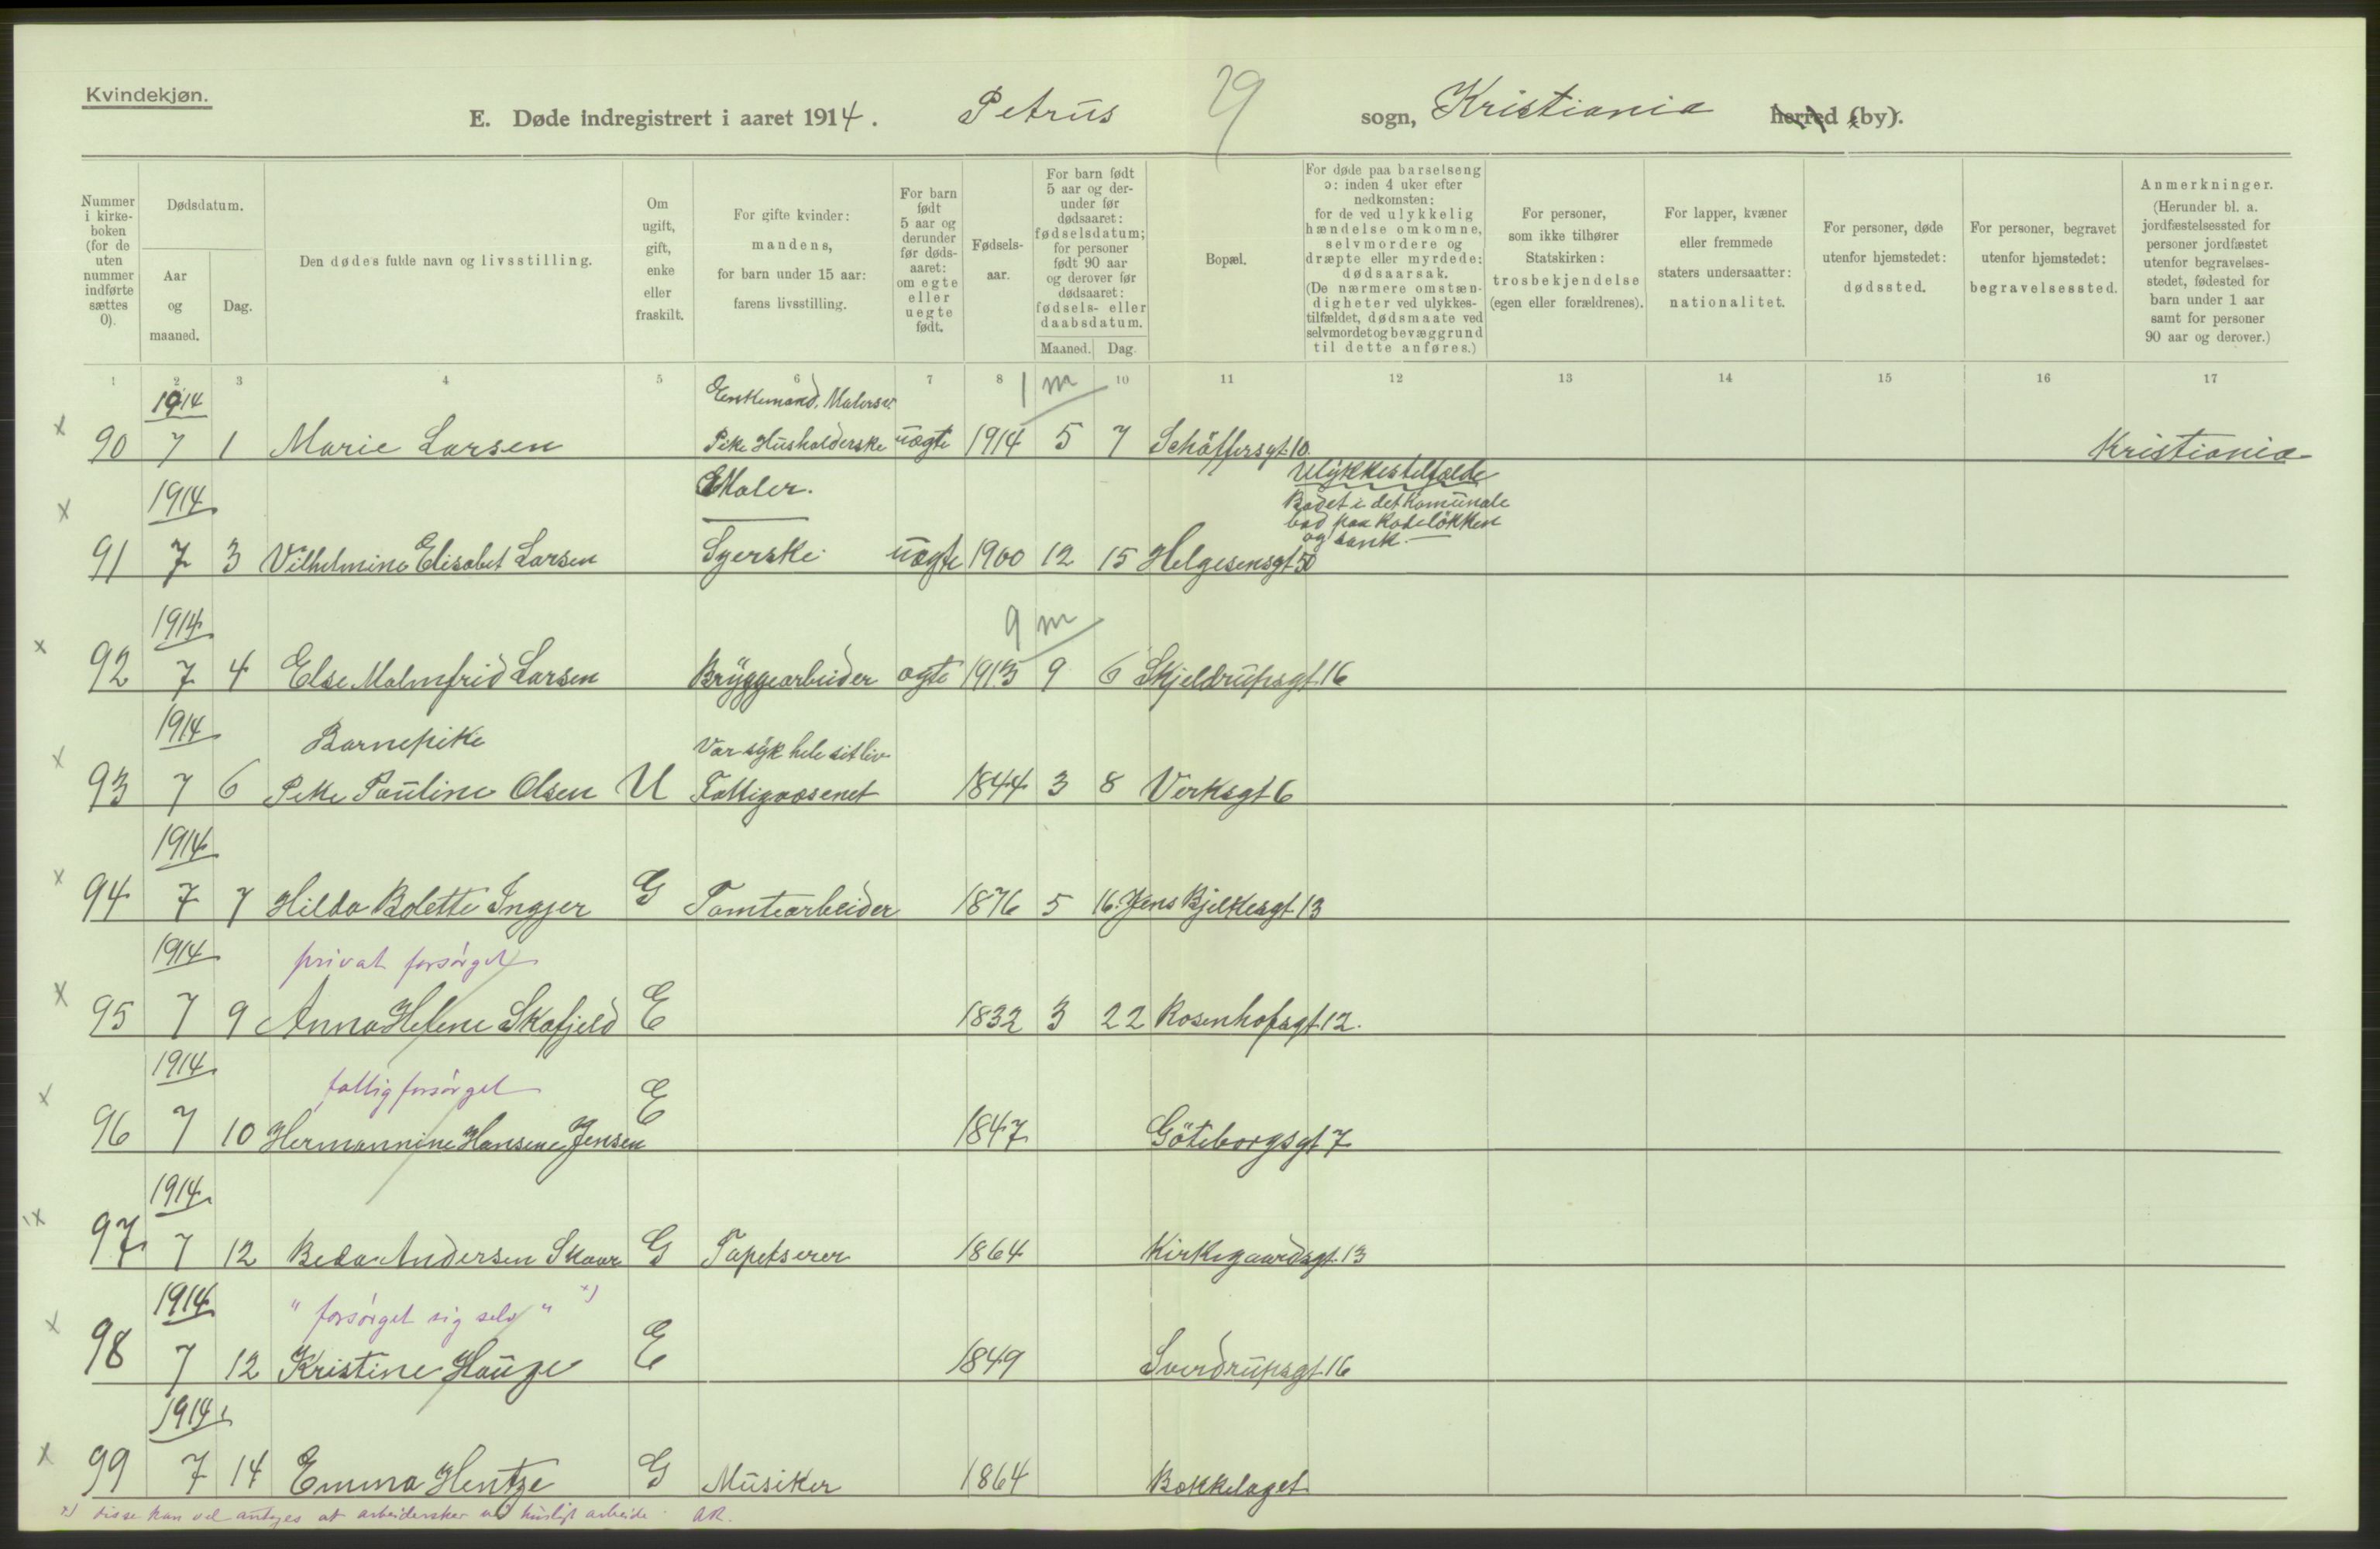 Kvindekjøn.
E. Døde indregistrert i aaret 1914. Petrus 29 sogn, Kristiania herred (by).
Nummer i kirkeboken (for de uten nummer indførte sættes 0).
Dødsdatum.
Aar og maaned.
Dag.
Den dødes fulde navn og livsstilling.
Om ugift, gift, enke eller fraskilt.
For gifte kvinder: mandens, for barn under 15 aar: farens livsstilling.
For barn født 5 aar og derunder før dødsaaret: om egte eller uegte født.
Fødselsaar.
For barn født 5 aar og derunder før dødsaaret: fødselsdatum; for personer født 90 aar og derover før dødsaaret: fødsels- eller daabsdatum.
Maaned. Dag.
Bopæl.
For døde paa barselseng ɔ: inden 4 uker efter nedkomsten: for de ved ulykkelig hændelse omkomne, selvmordere og dræpte eller myrdede: dødsaarsak. (De nærmere omstændigheter ved ulykkestilfældet, dødsmaate ved selvmordet og bevæggrund til dette anføres.)
For personer, som ikke tilhører Statskirken: trosbekjendelse (egen eller forældrenes).
For lapper, kvæner eller fremmede staters undersaatter: nationalitet.
For personer, døde utenfor hjemstedet: dødssted.
For personer, begravet utenfor hjemstedet: begravelsessted.
Anmerkninger. (Herunder bl. a. jordfæstelsessted for personer jordfæstet utenfor begravelsesstedet, fødested for barn under 1 aar samt for personer 90 aar og derover.)
1 2 3 4 5 6 7 8 10 11 12 13 14 15 16 17
1914 Enkemand, Malersv. 1 m
x 90 7 1 Marie Larsen Pike Husholderske uægte 1914 5 7 Schäffersgt. 10. Kristiania
1914 Maler. Ulykkestilfælde
Badet i det Komunale
bad paa Rodeløkken
og sank.
x 91 7 3 Vilhelmine Elisabet Larsen Syerske uægte 1900 12 15 Helgesensgt 50
1914 9 m
x 92 7 4 Else Malmfrid Larsen Bryggearbeider ægte 1913 9 6 Skjeldrupsgt. 16
1914 Barnepike Var syk hele sit liv
x 93 7 6 Pike Pauline Olsen U Fattigvæsenet 1844 3 8 Verksgt 6
1914
x 94 7 7 Hilda Bolette Ingjer G Tomtearbeider 1876 5 16. Jens Bjelkesgt. 13
1914 privat forsørget
x 95 7 9 Anna Helene Skafjeld E 1832 3 22 Rosenhofsgt 12.
1914 fattigforsørget
x 96 7 10 Hermannine Hansine Jensen E 1847 Göteborgsgt 7
1914
x 97 7 12 Beda Andersen Skaar G Tapetserer 1864 Kirkegaardsgt. 13
1914 "forsørget sig selv" x)
x 98 7 12 Kristine Hauge E 1849 Sverdrupsgt. 16
1914
x 99 7 14 Emma Hentze G Musiker 1864 Bakkelaget
x) disse kan vel antages at arbeidersker ved husligt arbeide. AR.